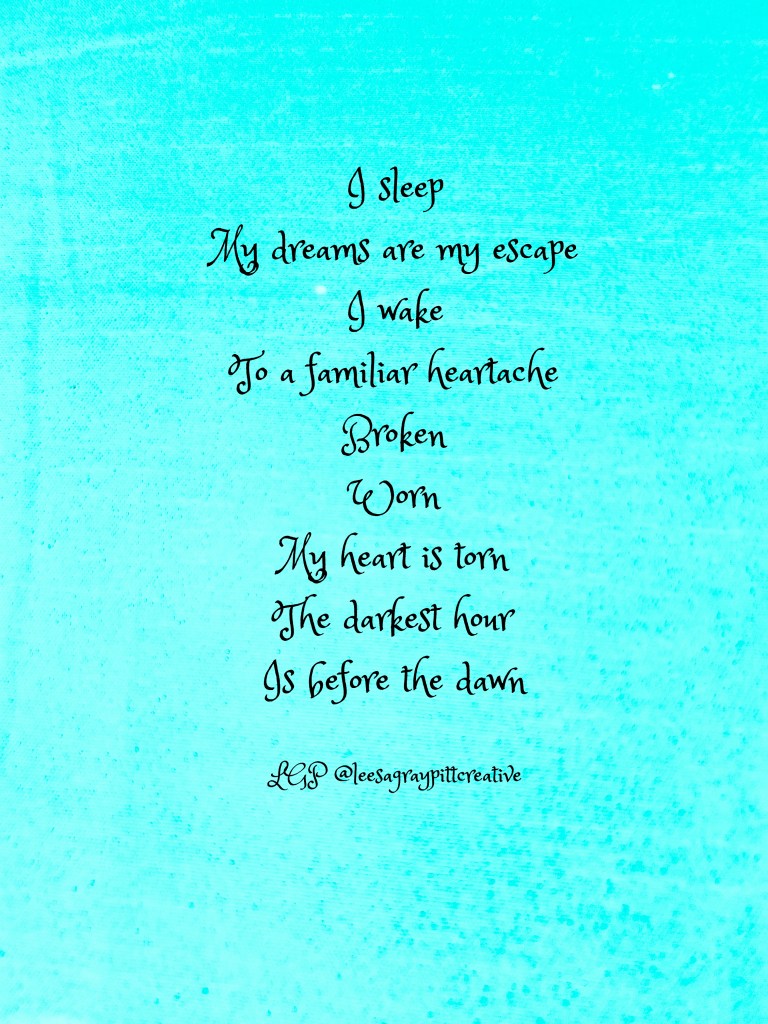 I sleep
My dreams are my escape
I wake
To a familiar heartache
Broken
Worn
My heart is torn
The darkest hour
Is before the dawn
LGP @leesagraypittcreative